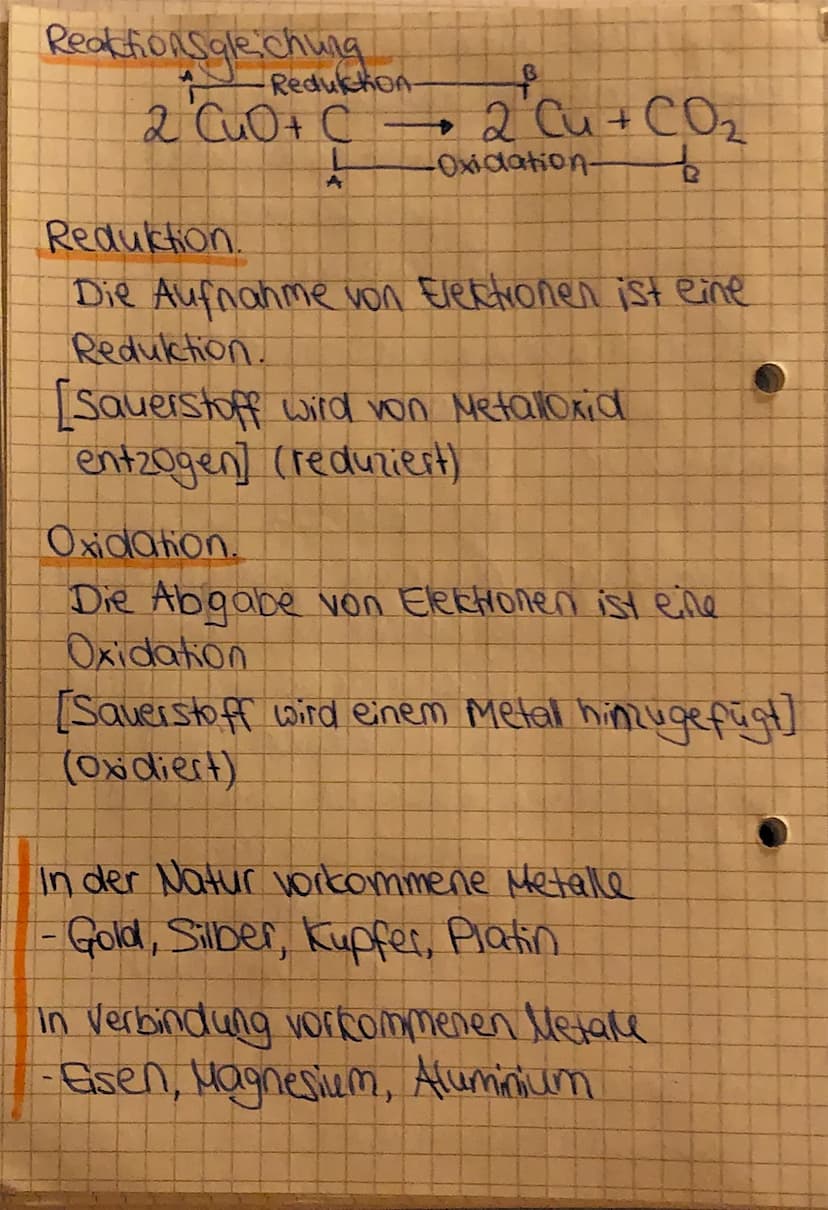 Reaktionsgleichung
A Reduktion B
2 CuO + C → 2 Cu + CO₂
A Oxidation B
Reduktion.
Die Aufnahme von Elektronen ist eine
Reduktion.
[Sauerstoff wird von Metalloxid
entzogen] (reduziert)
Oxidation.
Die Abgabe von Elektronen ist eine
Oxidation
[Sauerstoff wird einem Metal hinzugefügt]
(oxidiert)
In der Natur vorkommene Metalle
- Gold, Silber, Kupfer, Platin
In Verbindung vorkommenen Metalle
- Eisen, Magnesium, Aluminium